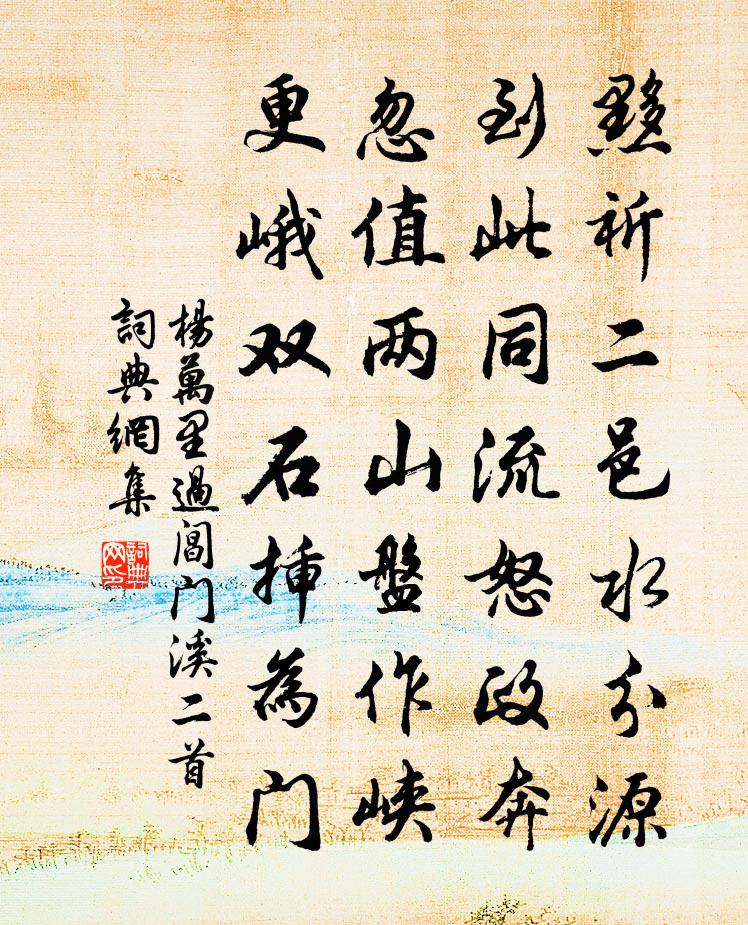 黟祈二邑水分源
到此同流怒政奔
忽值两山盤作峡
更峨双石插為门
楊萬里過閶门溪二首
詞典網集
詞典网印